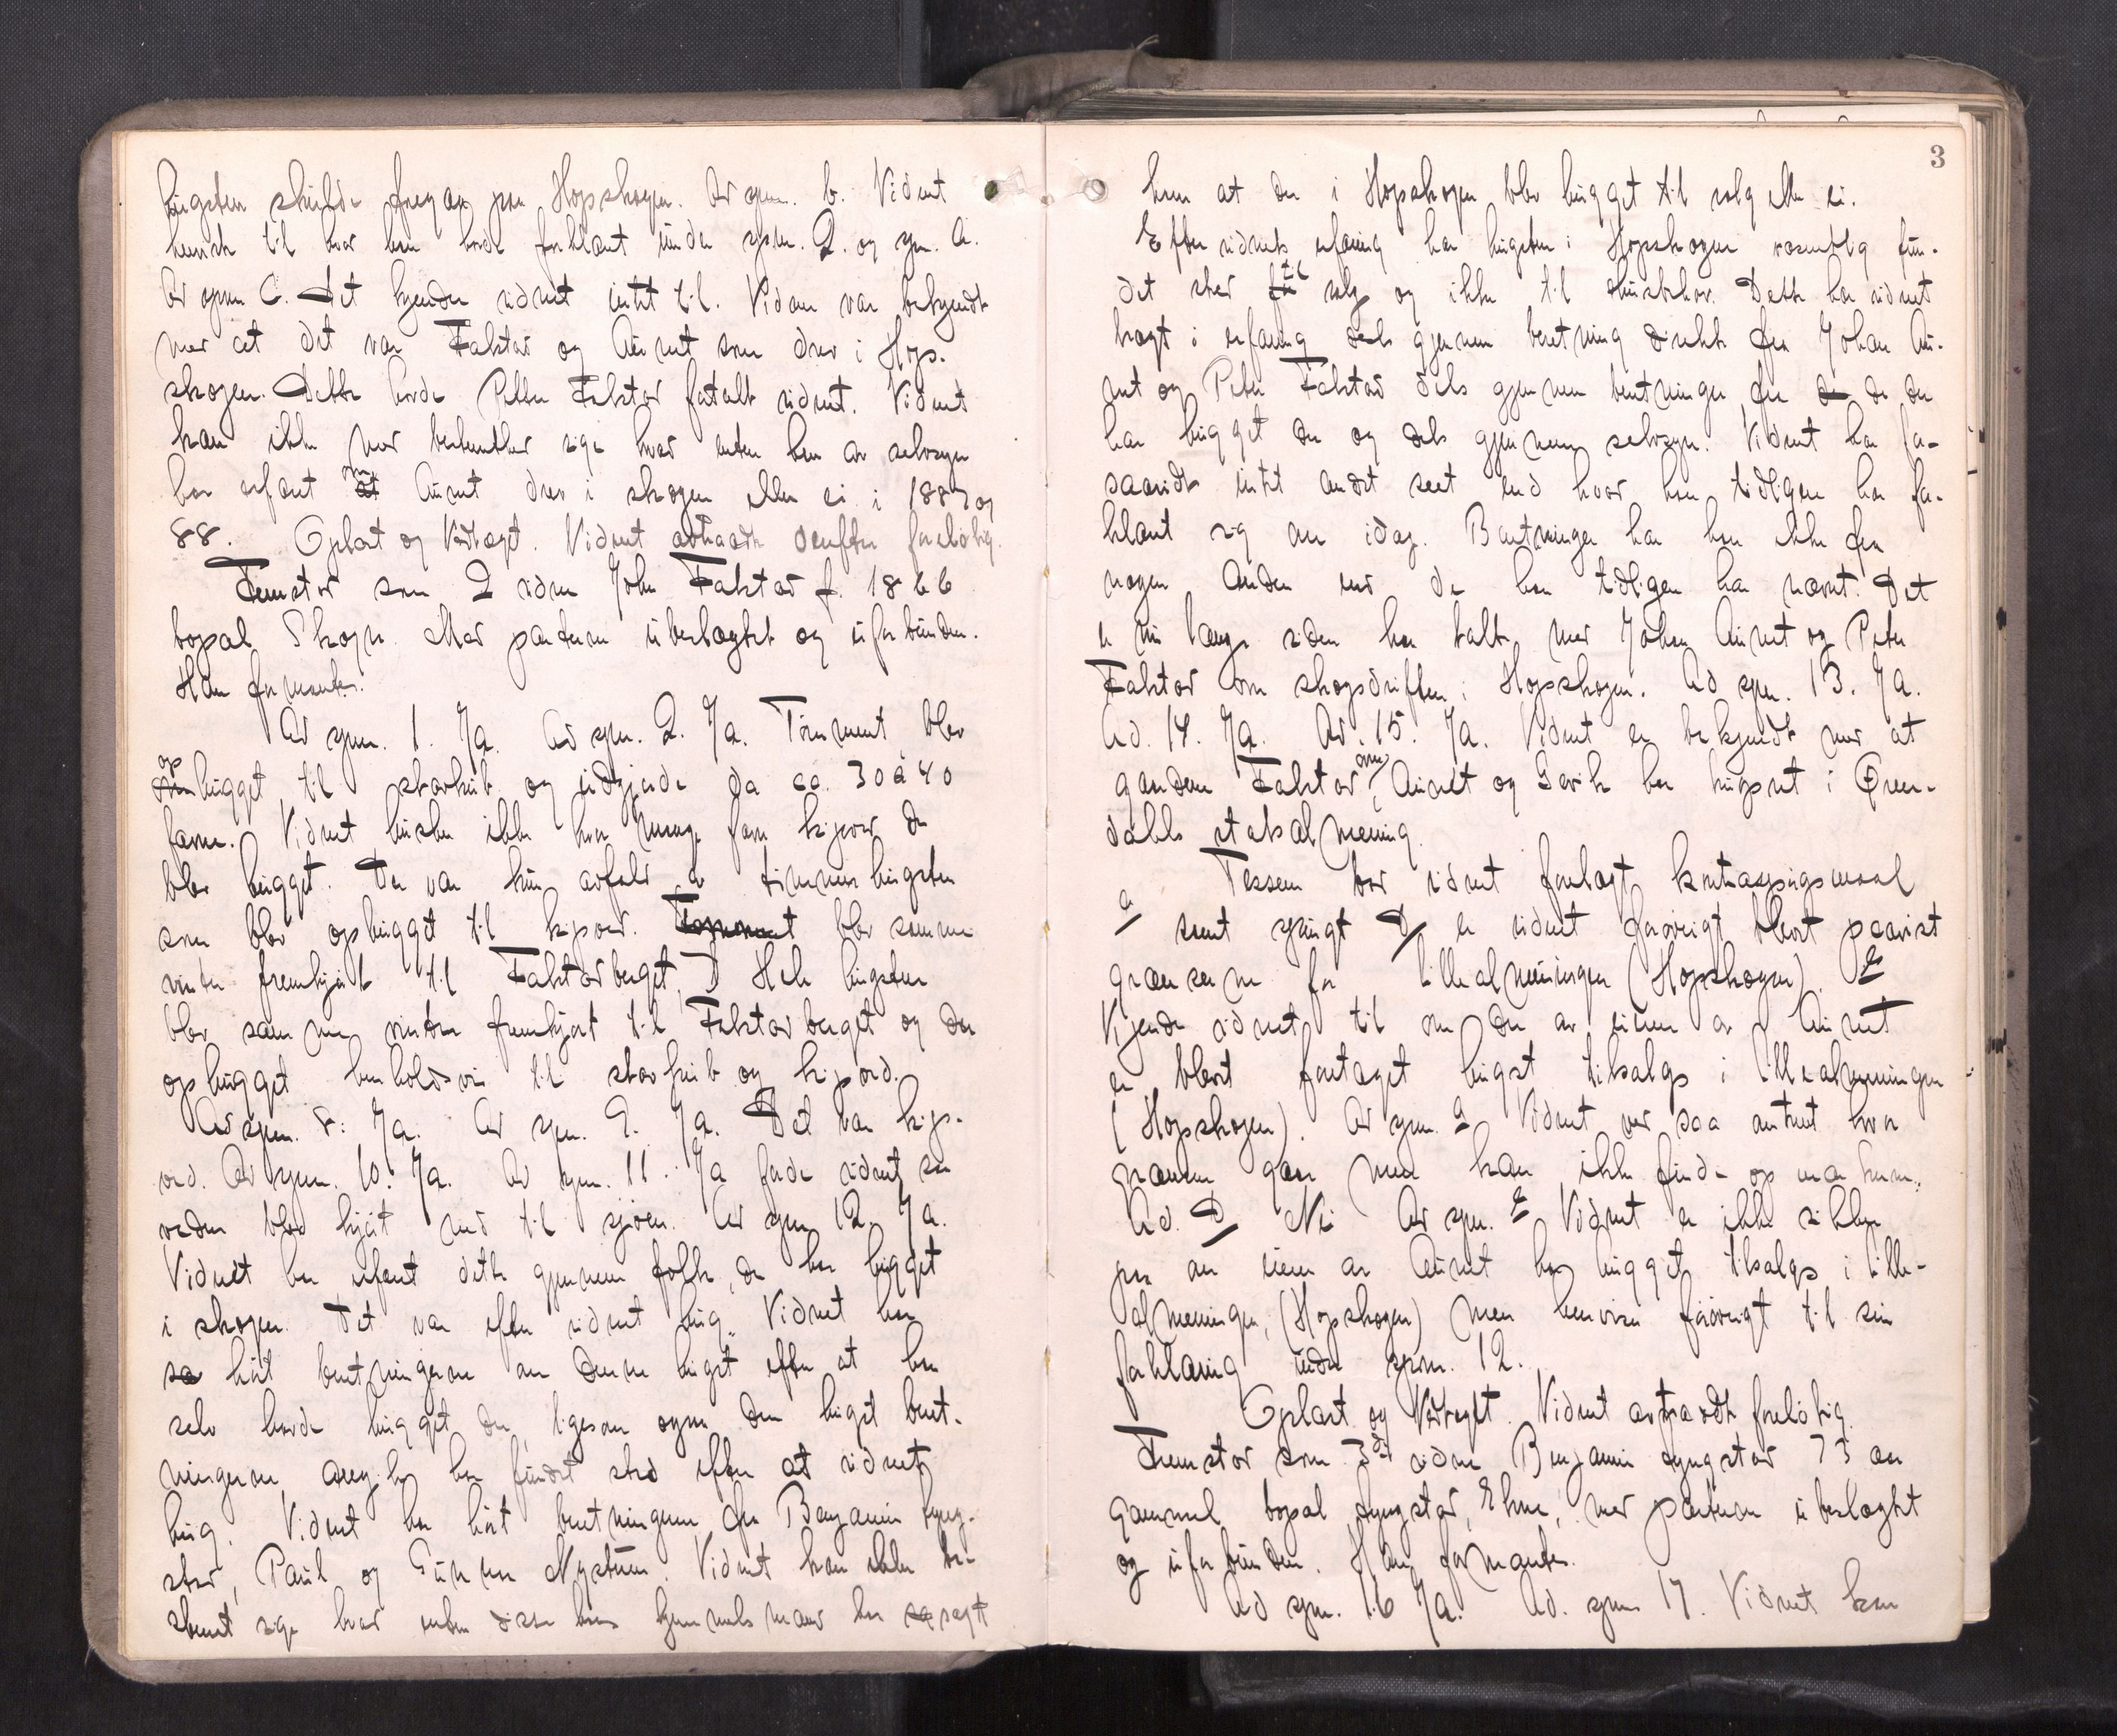 hugsten skulde foregaa paa Hopskogen. Ad spm. b. Vidnet
henviste til hvad han havde forklaret under spm. 2. og spm. a.
Ad spm C. Det kjender vidnet intet til. Vidnet var bekjendt
med at det var Faktor og Aunet som drev i Hop-
skogen. Dette havde Petter Faktor fortalt vidnet. Vidnet
kan ikke med bestemthet sige hvad enten han av selvsyn
har erfaret om Aunet drev i skogen eller ei i 1887 og
88. Oplæst og Vedtaget. Vidnet avtraadte derefter foreløbig.
Fremstod som 2 vidne John Faktor f. 1866
bopæl Skogn. Med parterne ubeslægtet og uforbunden.
Han formantes.
Ad spm. 1. Ja. Ad spm. 2. Ja. Tømmeret blev
ophugget til storkub og utgjorde da ca. 30 à 40
favne. Vidnet husker ikke hvor mange favne kipved der
blev hugget. Der var kun avfald av tømmerhugsten
som blev ophugget til kipved. blev samme
vinter fremkjørt til Faktorberget. Hele hugsten
blev samme vinter fremkjørt til Faktorberget og der
ophugget henholdsvis til storkub og kipved.
Ad spm. 8: Ja. Ad spm. 9. Ja. Det var kip-
ved. Ad spm. 10. Ja. Ad spm. 11. Ja førde vidnet saa
veden blev kjørt ned til sjøen. Ad spm 12. Ja.
Vidnet har erfaret dette gjennem folk, der har hugget
i skogen. Det var efter vidnet hug. Vidnet har
hørt beretningerne om denne hugst efter at han
selv havde hugget der, ligesom ogsaa den hugst beret-
ningerne angik har fundet sted efter at vidnet
hug. Vidnet har hørt beretningerne fra Benjamin Lyng-
stad, Paul og Gunnar Nystuen. Vidnet kan ikke be-
stemt sige hvad enten disse hans hjemmelsmænd har sagt
3
ham at der i Hopskogen blev hugget til salg eller ei.
Efter vidnets erfaring har hugsten i Hopskogen væsentlig fun-
det sted til salg og ikke til husbehov. Dette har vidnet
bragt i erfaring dels gjennem beretning direkte fra Johan Au-
net og Peter Faktor dels gjennem beretninger fra de der
har hugget der og dels gjennem selvsyn. Vidnet har for-
saavidt intet andet seet end hvad han tidligere har for-
klaret sig om idag. Beretninger har han ikke fra
nogen anden end de han tidligere har nævnt. Det
er nu længe siden han talte med Johan Aunet og Peter
Faktor om skogsdriften i Hopskogen. Ad spm. 13. Ja.
Ad. 14. Ja. Ad. 15. Ja. Vidnet er bekjendt med at
gaardene Faktor, Aunet og Gorik har hugsret i Quer-
dals statsalmenning.
Tessem bad vidnet forelagt kontraspørgsmaal
a
samt spurgt D/ er vidnet forøvrigt blevet paavist
grænserne for Lillealmenningen (Hopskogen). E
Kjender vidnet til om der av eieren av Aunet
er blevet foretaget hugst tilsalgs i lillealmenningen
(Hopskogen). Ad spm. a Vidnet ved saa omtrent hvor
grænsen gaar men kan ikke finde op mærkerne.
Ad. D/ Nei Ad spm. E Vidnet er ikke sikker
paa om eieren av Aunet har hugget tilsalgs i lille-
almenningen, (Hopskogen) men henviser forøvrigt til sin
forklaring under spm. 12.
Oplæst og Vedtaget. Vidnet avtraadte foreløbig.
Fremstod som 3de vidne Benjamin Lyngstad 73 aar
gammel bopæl Lyngstad, Ekne, med parterne ubeslægtet
og uforbunden. Han formantes.
Ad spm. 16 Ja. Ad. spm. 17. Vidnet kan